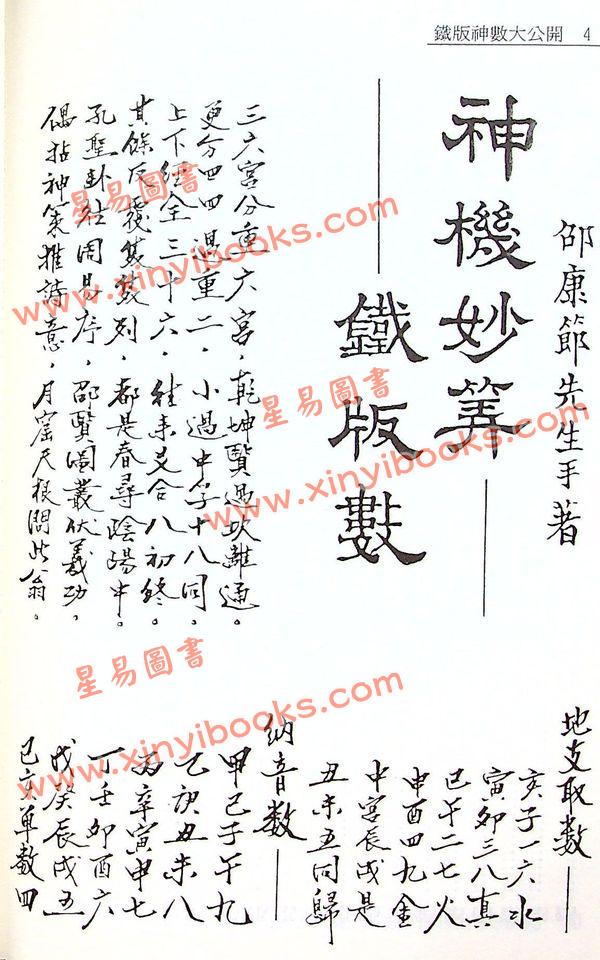 鐵版神數大公開 4
邵康節先生手著
神機妙筭
鐵版數
三六宮分重六宮，乾坤賢過坎離通。
更分四四過重二，小過中孚十八同。
上下經全三十六，往來爻合八初終。
其餘反覆隻數列，都是春尋陰陽中。
孔聖卦結周易序，邵賢閫叢伏羲功，
拈神策推詩意，月窟天根問此翁。
地支取數
亥子一六水
寅卯三八真
巳午二七火
申酉四九金
中宮辰戌是
丑未五同歸
納音數
甲己子午九
乙庚丑未八
丙辛寅申七
丁壬卯酉六
戊癸辰戌五
巳亥單數四
星易圖書
www.xinyibooks.com
星易圖書
www.xinyibooks.com
星易圖書
www.xinyibooks.com